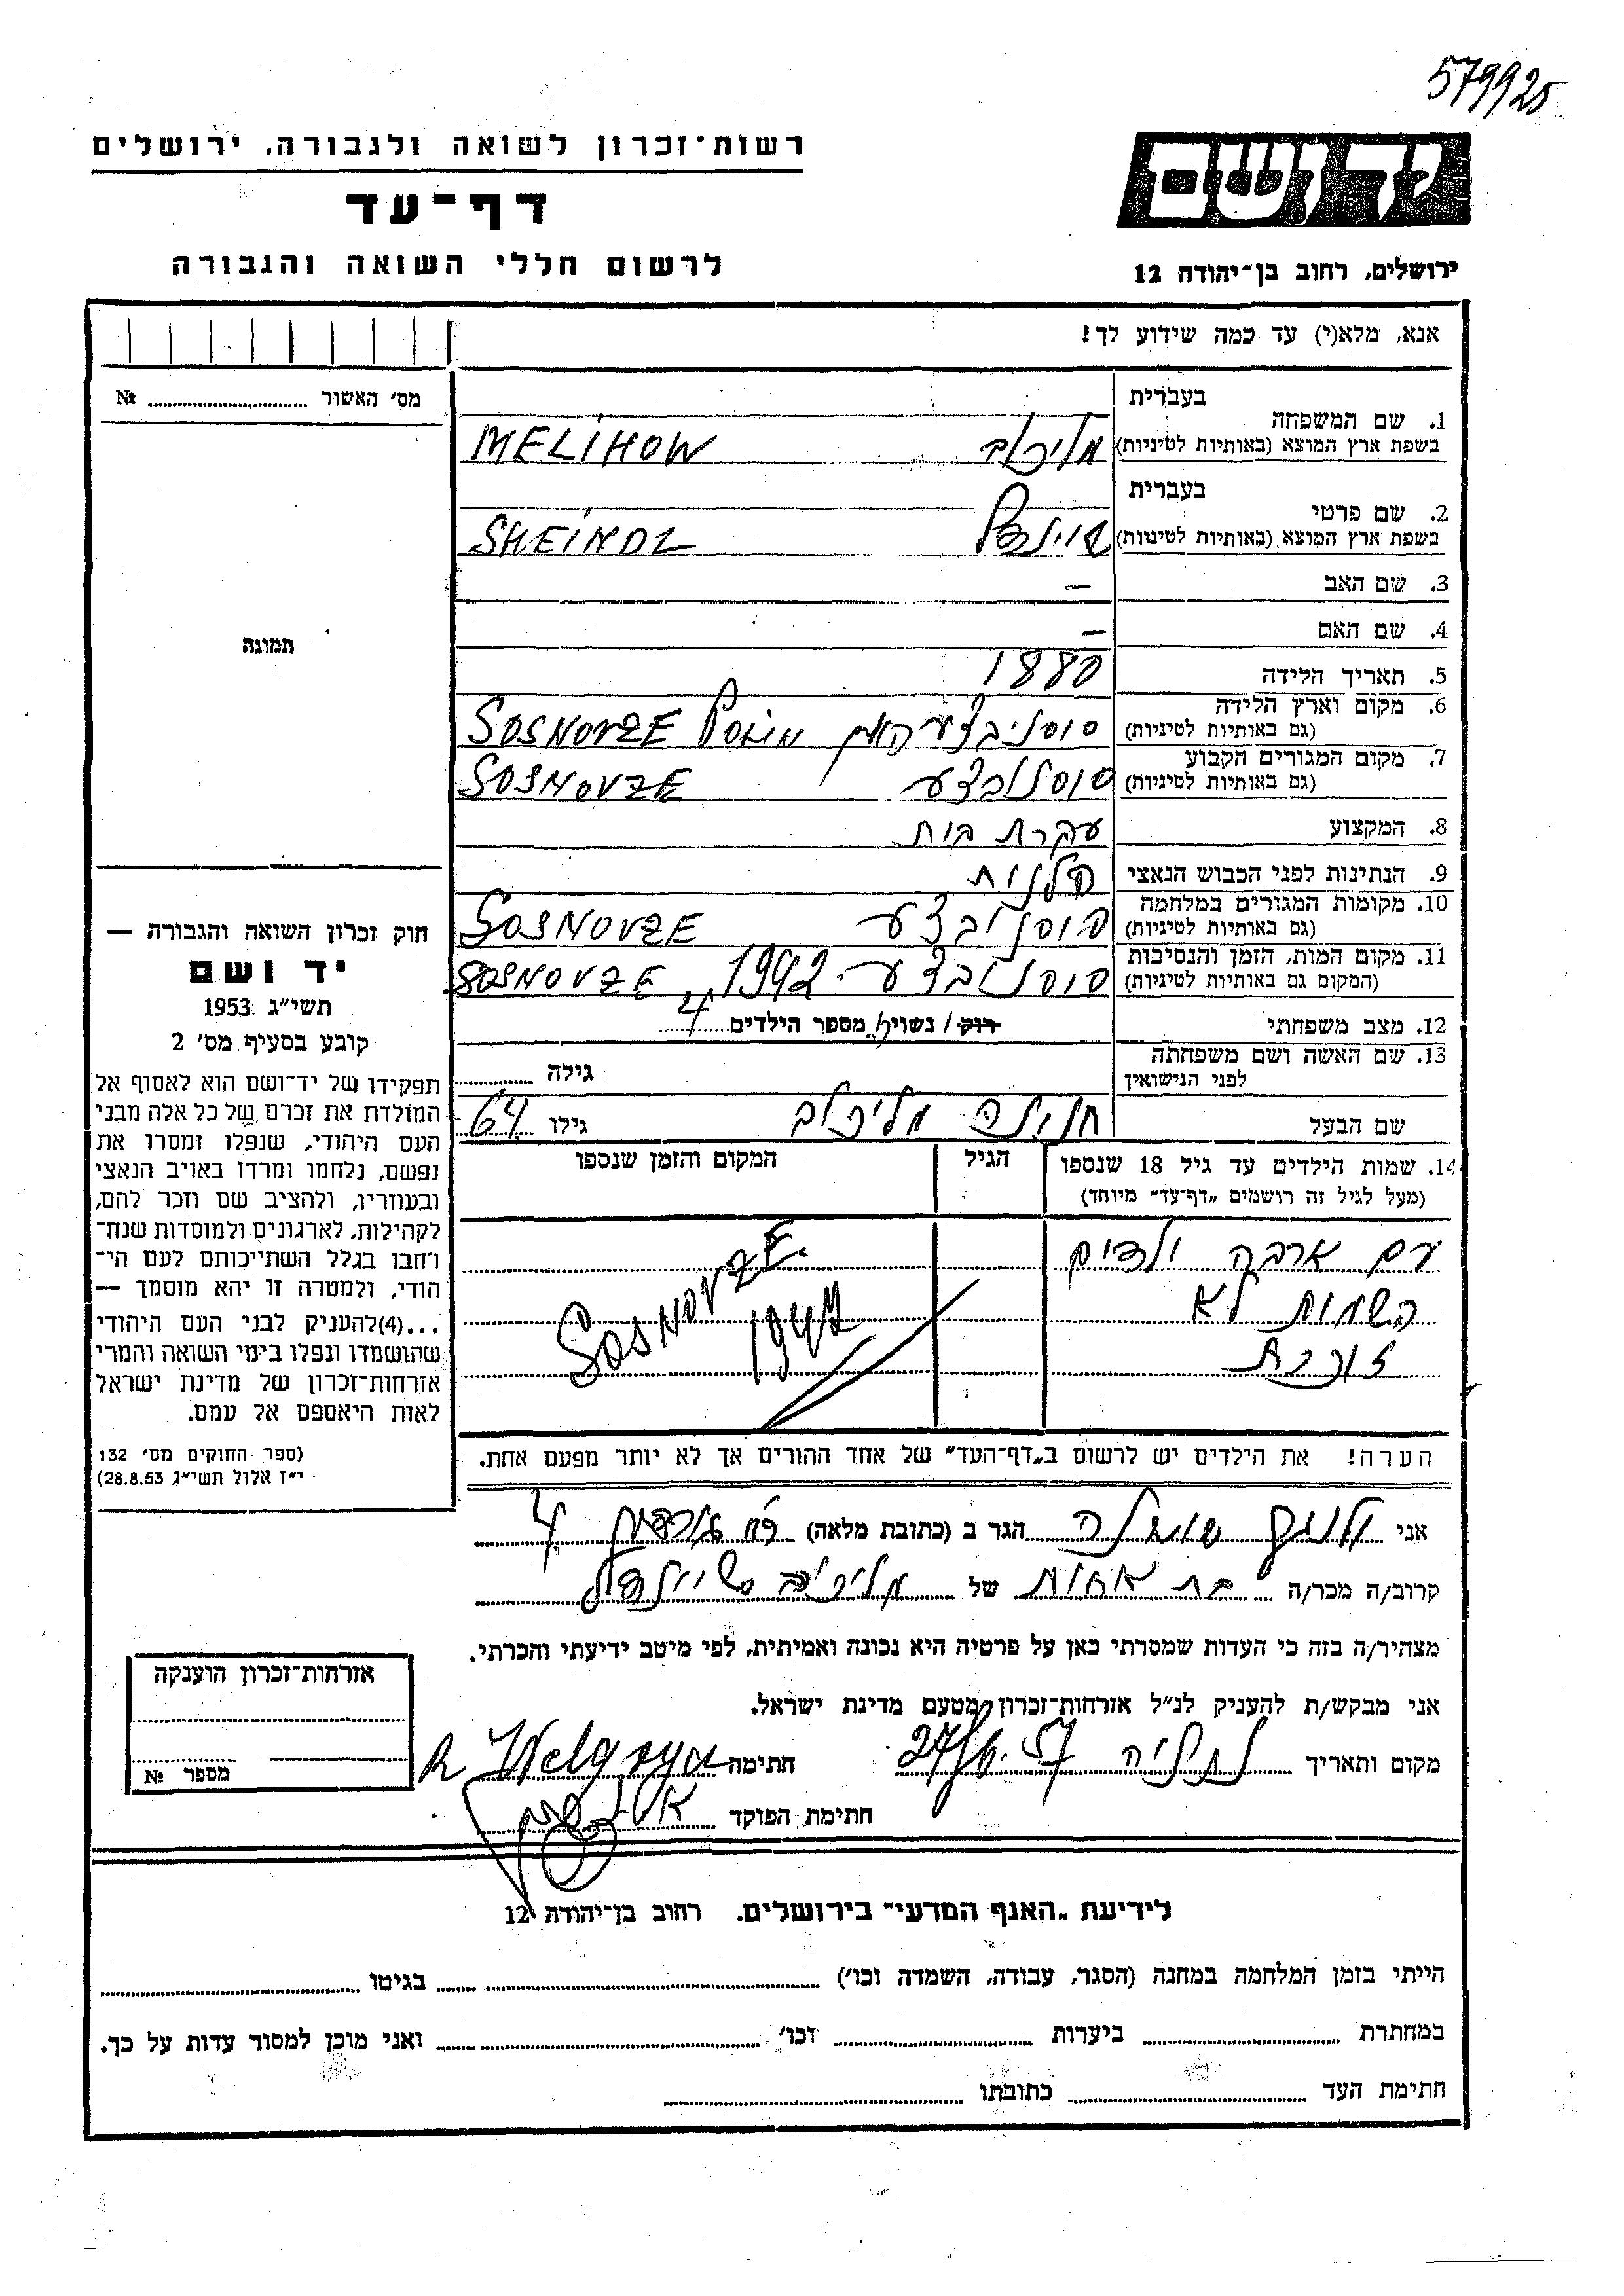 579925
יד ושם
רשות־זכרון לשואה ולגבורה, ירושלים
דף־עד
לרשום חללי השואה והגבורה
ירושלים, רחוב בן־יהודה 12
אנא, מלא(י) עד כמה שידוע לך!
מס׳ האשור № 
תמונה
חוק זכרון השואה והגבורה —
יד ושם
תשי״ג 1953
קובע בסעיף מס׳ 2
תפקידו של יד־ושם הוא לאסוף אל
המולדת את זכרם של כל אלה מבני
העם היהודי, שנפלו ומסרו את
נפשם, נלחמו ומרדו באויב הנאצי
ובעוזריו, ולהציב שם וזכר להם,
לקהילות, לארגונים ולמוסדות שנח־
רבו בגלל השתייכותם לעם הי־
הודי, ולמטרה זו יהא מוסמך —
...(4)להעניק לבני העם היהודי
שהושמדו ונפלו בימי השואה והמרי
אזרחות־זכרון של מדינת ישראל
לאות היאספם אל עמם.
(ספר החוקים מס׳ 132
י״ז אלול תשי״ג 28.8.53)
בעברית
1. שם המשפחה
בשפת ארץ המוצא (באותיות לטיניות) מליכוב MELIHOW
בעברית
2. שם פרטי
בשפת ארץ המוצא (באותיות לטיניות) שיינדל SHEINDL
3. שם האב —
4. שם האם —
5. תאריך הלידה 1880
6. מקום וארץ הלידה
(גם באותיות לטיניות) SOSNOVZE
7. מקום המגורים הקבוע
(גם באותיות לטיניות) סוסנובצע SOSNOVZE
8. המקצוע עקרת בית
9. הנתינות לפני הכבוש הנאצי פלנית
10. מקומות המגורים במלחמה
(גם באותיות לטיניות) סוסנובצע SOSNOVZE
11. מקום המות, הזמן והנסיבות
(המקום גם באותיות לטיניות) סוסנובצע - 1942 SOSNOVZE
12. מצב משפחתי רוק / נשוי/ה מספר הילדים 4
13. שם האשה ושם משפחתה
לפני הנישואין גילה
שם הבעל חנינה מליכוב גילו 64
14. שמות הילדים עד גיל 18 שנספו הגיל המקום והזמן שנספו
(מעל לגיל זה רושמים „דף־עד״ מיוחד)
עם ארבה ילדים SOSNOVZE.
השמות לא 1942
זוכרת
הערה! את הילדים יש לרשום ב„דף־העד״ של אחד ההורים אך לא יותר מפעם אחת.
אני שושנה הגר ב (כתובת מלאה) 4
קרוב/ה מכר/ה בת אחות של מליכוב שיינדל
מצהיר/ה בזה כי העדות שמסרתי כאן על פרטיה היא נכונה ואמיתית, לפי מיטב ידיעתי והכרתי.
אני מבקש/ת להעניק לנ״ל אזרחות־זכרון מטעם מדינת ישראל.
מקום ותאריך נתניה חתימה
חתימת הפוקד
אזרחות־זכרון הוענקה
מספר №
לידיעת „האגף המדעי״ בירושלים. רחוב בן־יהודה 12
הייתי בזמן המלחמה במחנה (הסגר, עבודה, השמדה וכו׳) בגיטו
במחתרת ביערות וכו׳ ואני מוכן למסור עדות על כך.
חתימת העד כתובתו